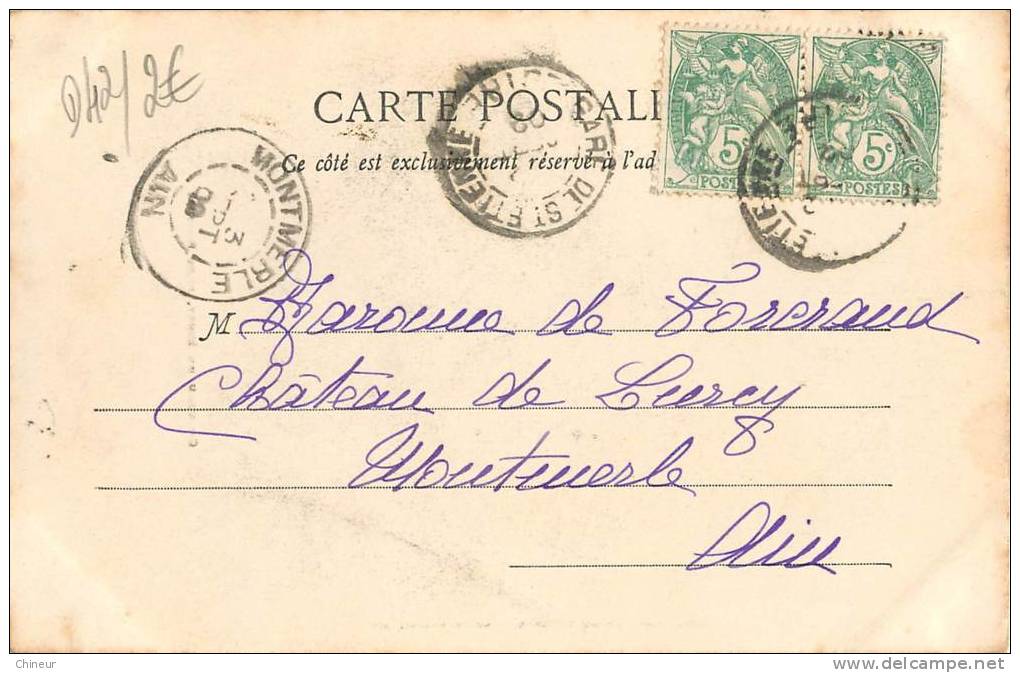 D42/2€
CARTE POSTALE
Ce côté est exclusivement réservé à l'ad
GARE DE ST ETIENNE
5c 5c
POSTES POSTES
ETIENNE
MONTMERLE
AIN
3
SEPT
M Baronne de Forcrand
Château de Lurcy
Montmerle
Ain
Chineur
www.delcampe.net